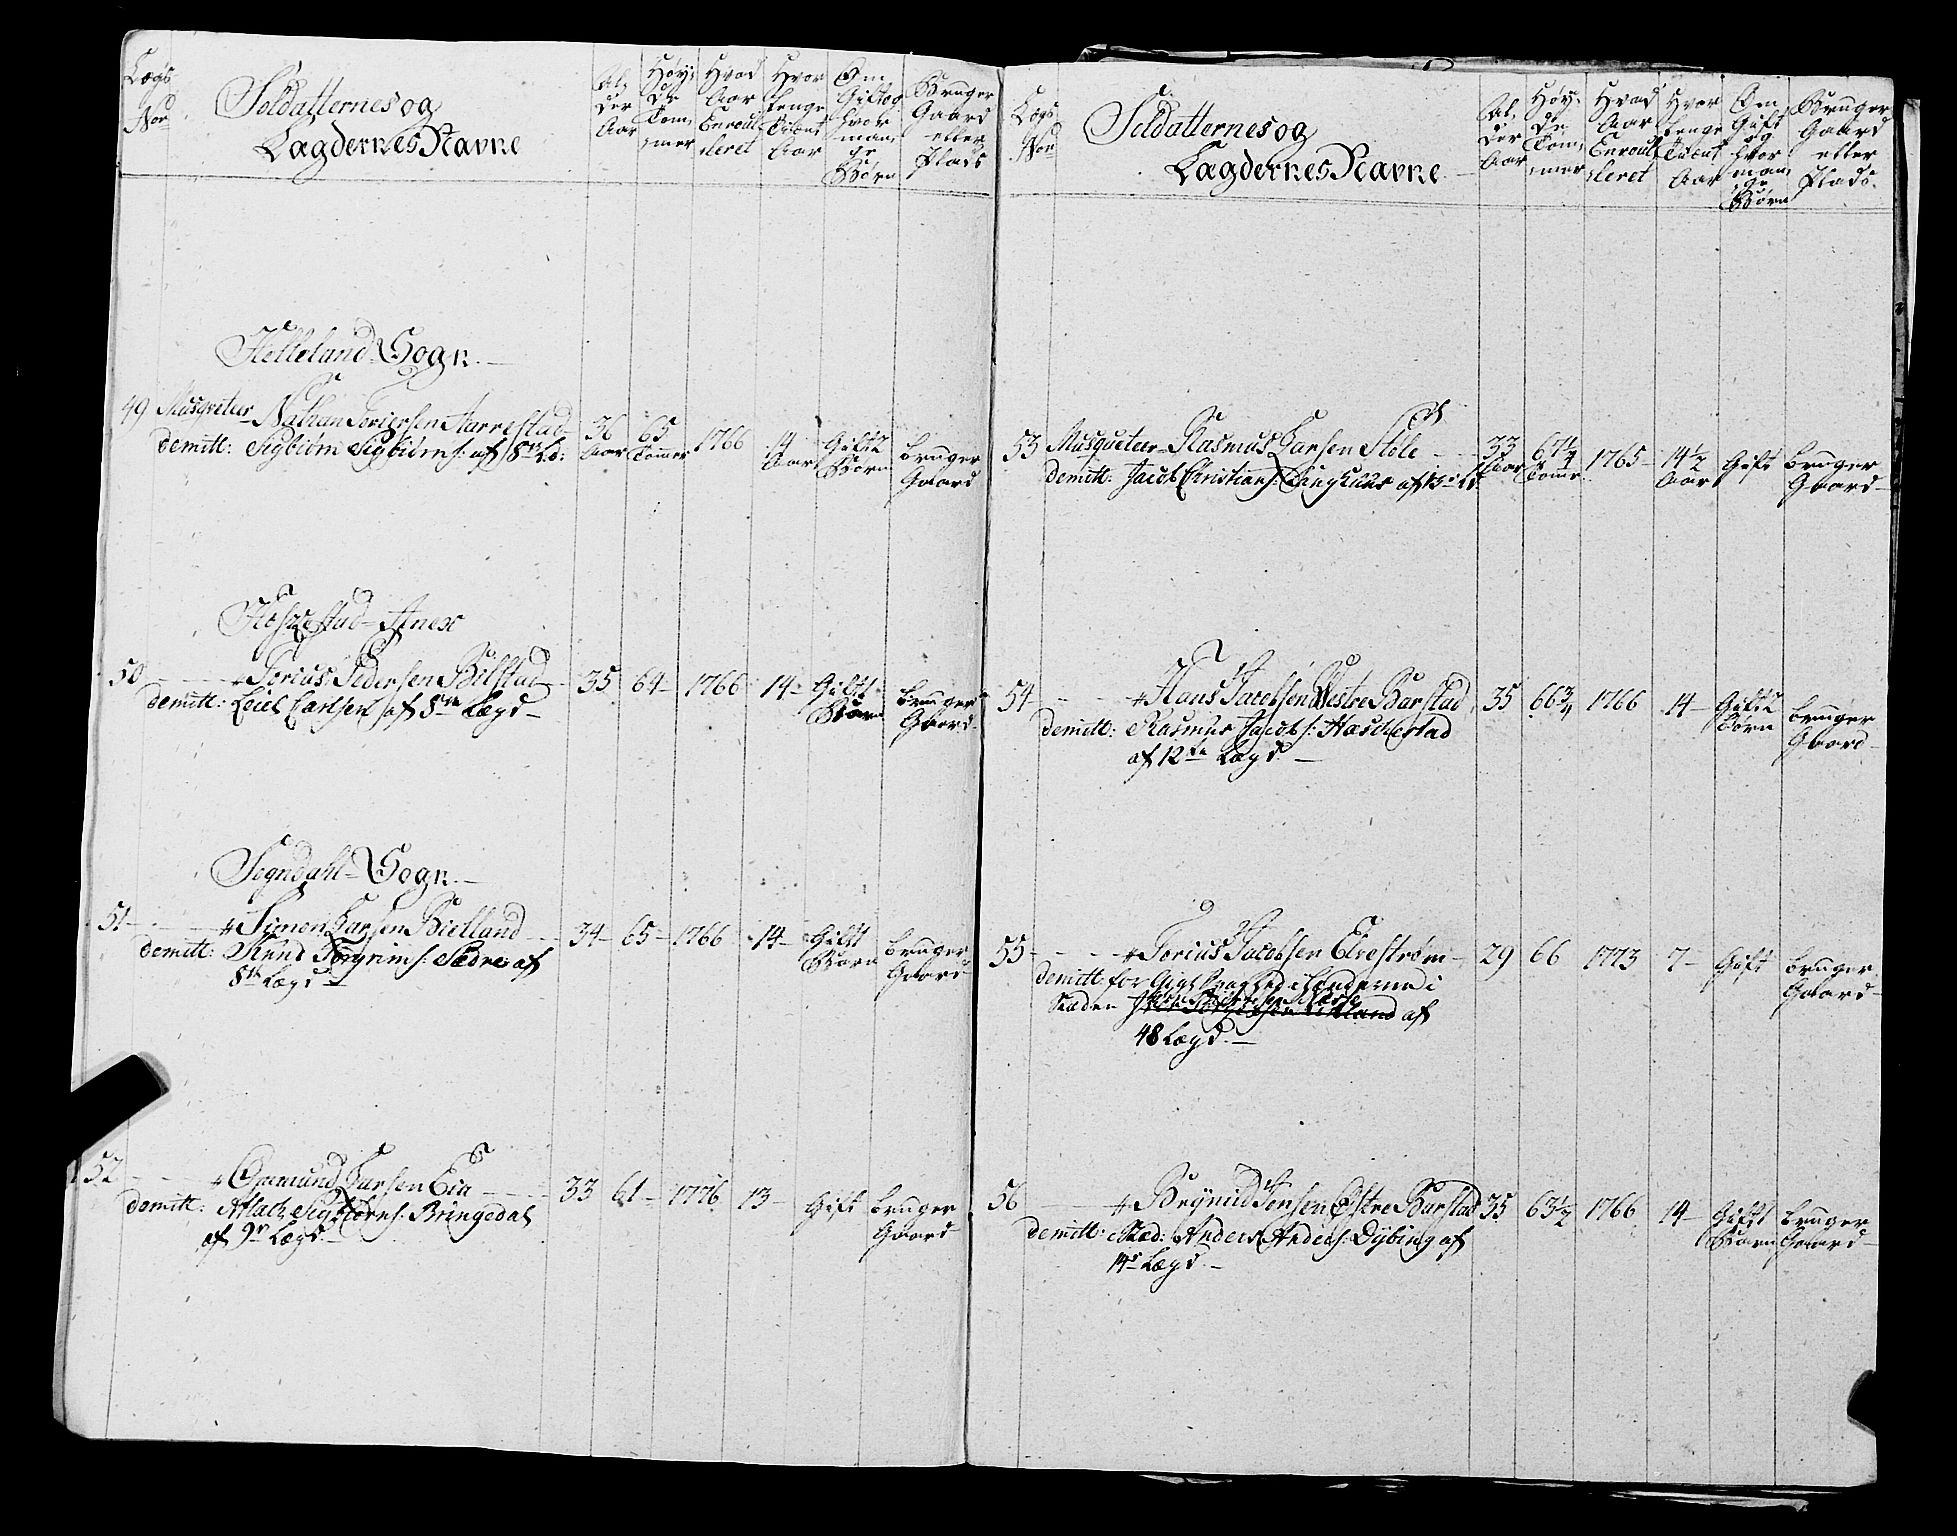 Lægs
Noe
Soldatternes og
Lægdernes Navne
Al,
der
Aar
Høy,
de
Tom,
mer
Hvad
Aar
Enroul,
leret
Hvor
lenge
Tient
Aar
Om
Gift og
hvor
man,
ge
Børn
Bruger
Gaard
eller
Plads
Helleland Sogn.
49 Musqveteer Nathan Toriersen Aarrestad 36 Aar 65 Tommer 1766 14 Aar Gift 2 Børn bruger Gaard
demitt: Sigbiørn Sigbiørns: af 8de Ld:
Hæskestad Anex
50 Torius Pedersen Bilstad 35 64 1766 14 Gift 1 Barn bruger Gaard
demitt: Leiel Carlsen af 8de Lægd
Sogndahl Sogn.
51 Simon Larsen Bielland 34 65 1766 14 Gift 1 Barn bruger Gaard
demitt: Knud Torgrims: Sædre af
8de Lægd
52 Omund Larsen Eia 33 61 1776 13 Gift bruger Gaard
demitt: Aslach Sigbiørns: Bringedal
af 9de Lægd
Lægs
Noe
Soldatternes og
Lægdernes Navne
Al,
der
Aar
Høy,
de
Tom,
mer
Hvad
Aar
Enroul,
leret
Hvor
lenge
Tient
Aar
Om
Gift
og
hvor
man,
ge
Børn
Bruger
Gaard
eller
Plads.
53 Musqueteer Rasmus Larsen Støle 33 Aar 67 1/4 Tomr 1765 14 1/2 Aar Gift bruger Gaard
demitt: Jacob Christians: af 13de Ld
54 Hans Jacobsen Westre Barstad 35 66 3/4 1766 14 Gift 2 Børn bruger Gaard
demitt: Rasmus Jacobs: Hæschestad
af 12te Lægd
55 Torius Jacobsen Elvestrøm 29 66 1773 7 Gift bruger Gaard
demitt: for Gigt i Lænderne i
Stæden af
48 Lægd
56 Brynild Tonsen Østre Barstad 35 63 1/2 1766 14 Gift 1 Barn bruger Gaard
demitt: Stæd: Anders Anders: Dybing af
14de Lægd